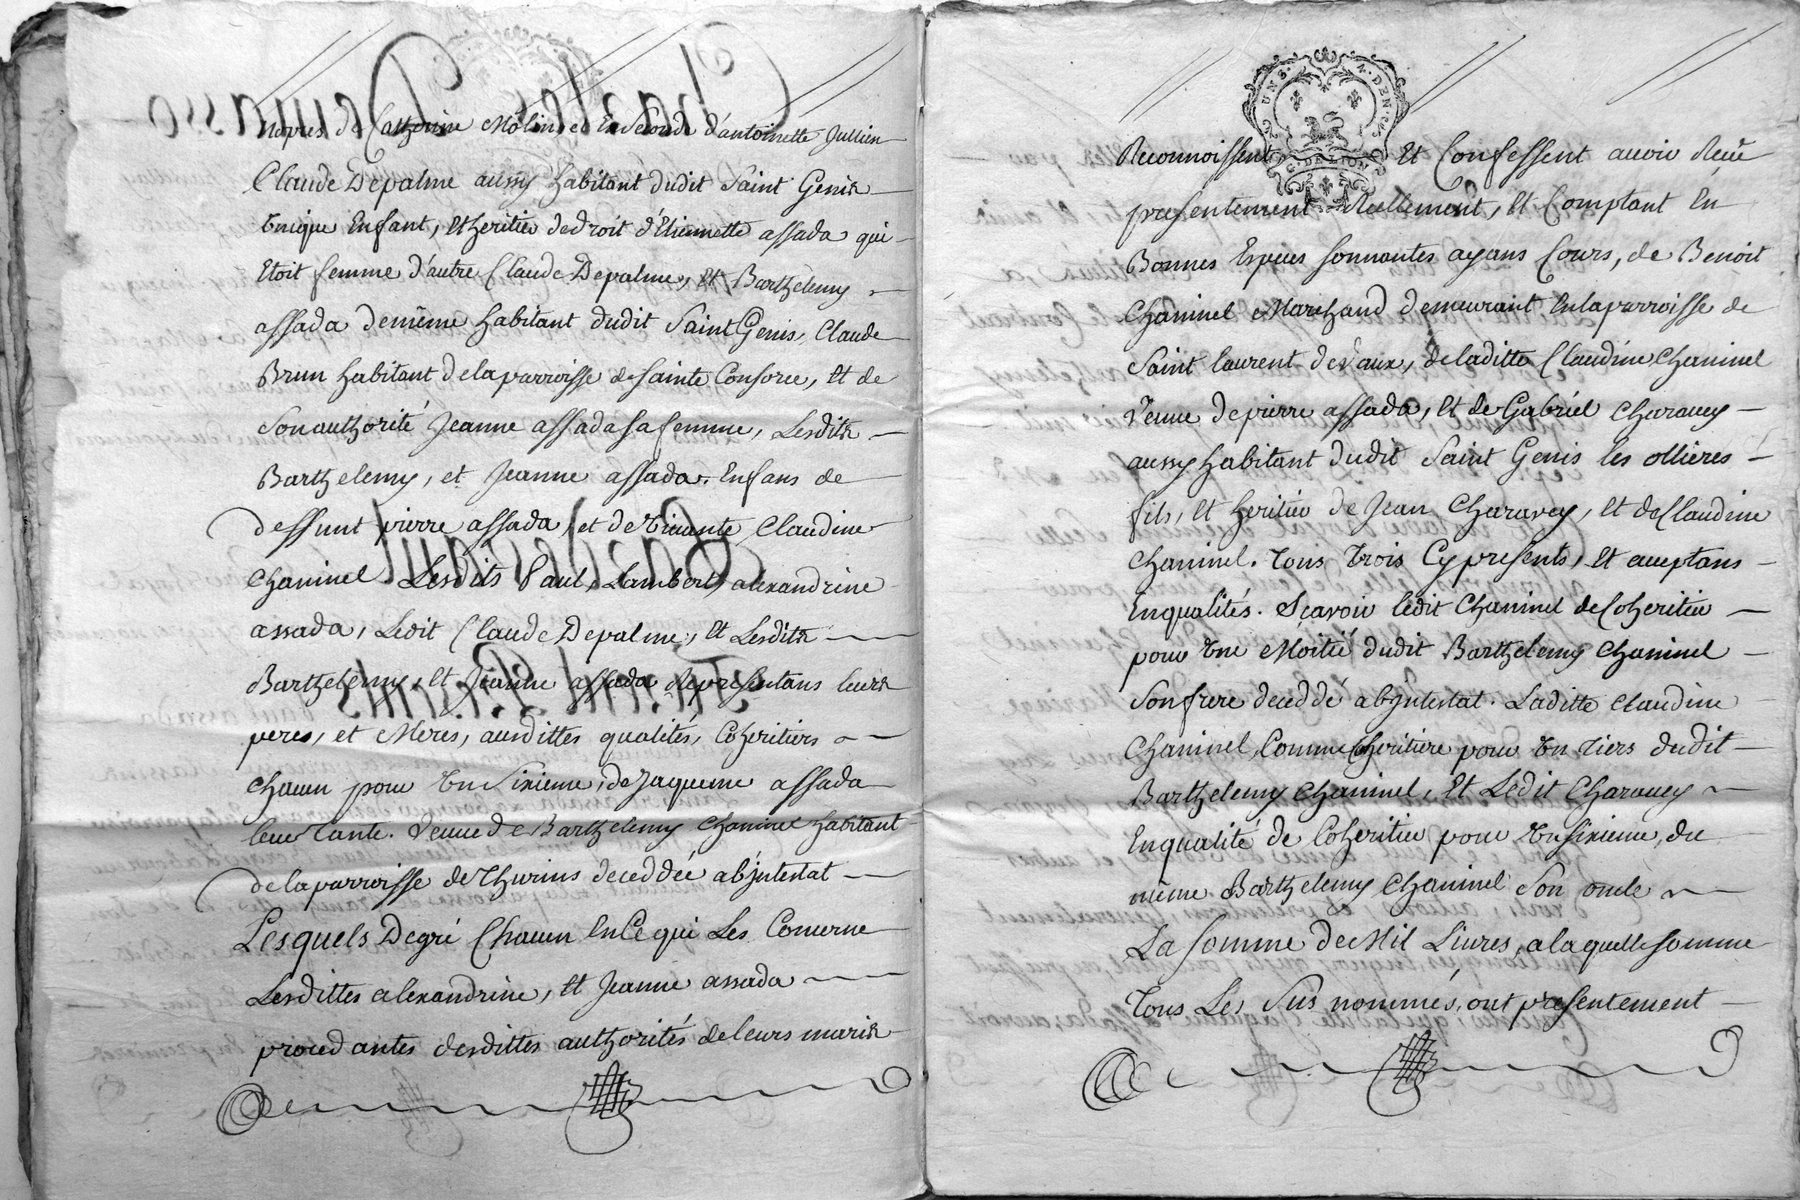 nopces de Catherine Molin et En seconde d'antoinette Jullien
Claude Depalme aussy habitant dudit Saint Genis
Unique Enfant, Et heritier de droit d'Etiennette assada qui
Etoit femme d'autre Claude Depalme, Et Barthelemy
assada de même habitant dudit Saint Genis, Claude
Brun habitant de la parroisse de Sainte Consorce, Et de
Son authorité Jeanne assada sa femme, Lesdits
Barthelemy, et Jeanne assada Enfans de
deffunt pierre assada, et de Vivante Claudine
Chaninel Lesdits Paul, Lambert, alexandrine
assada, Ledit Claude Depalme, Et Lesdits
Barthelemy, Et Jeanne assada representans leurs
peres, et Meres, ausdittes qualités, Coheritiers
chacun pour Un Sixieme, de Jaqueme assada
leur Tante. Veuve de Barthelemy Chaninel habitant
de la parroisse de Thurins deceddée abjntestat
Lesquels De gré Chacun En Ce qui Les Concerne
Lesdittes alexandrine, Et Jeanne assada
procedantes desdittes authorités de leurs maris
Reconnoissent, Et Confessent avoir Receu
presentement Reellement, Et Comptant En
Bonnes Especes sonnantes ayans Cours, de Benoit
Chaninel Marchand demeurant En la parroisse de
Saint laurent de Vaux, de laditte Claudine Chaninel
Veuve de pierre assada, Et de Gabriel Charavey
aussy habitant dudit Saint Genis les ollieres
fils, Et heritier de Jean Charavey, Et de Claudine
Chaninel. Tous Trois Cy presents, Et acceptans
En qualités. Sçavoir ledit Chaninel de Coheritier
pour Une Moitié dudit Barthelemy Chaninel
Son frere deceddé abjntestat. Laditte Claudine
Chaninel, Comme Coheritiere pour Un Tiers dudit
Barthelemy Chaninel, Et Ledit Charavey
En qualité de Coheritier pour Un Sixieme, du
même Barthelemy Chaninel Son oncle
La Somme de Mil Livres, a laquelle somme
Tous Les Sus nommés, ont presentement